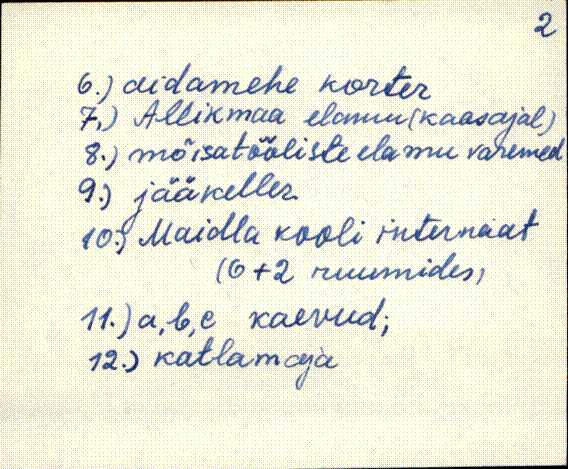 2
6.) aidamehe korter
7.) Allikmaa elamu (kaasajal)
8.) mõisatööliste elamu varemed
9.) jääkeller
10.) Maidla kooli internaat
(6+2 ruumides)
11.) a, b, c kaevud;
12.) katlamaja